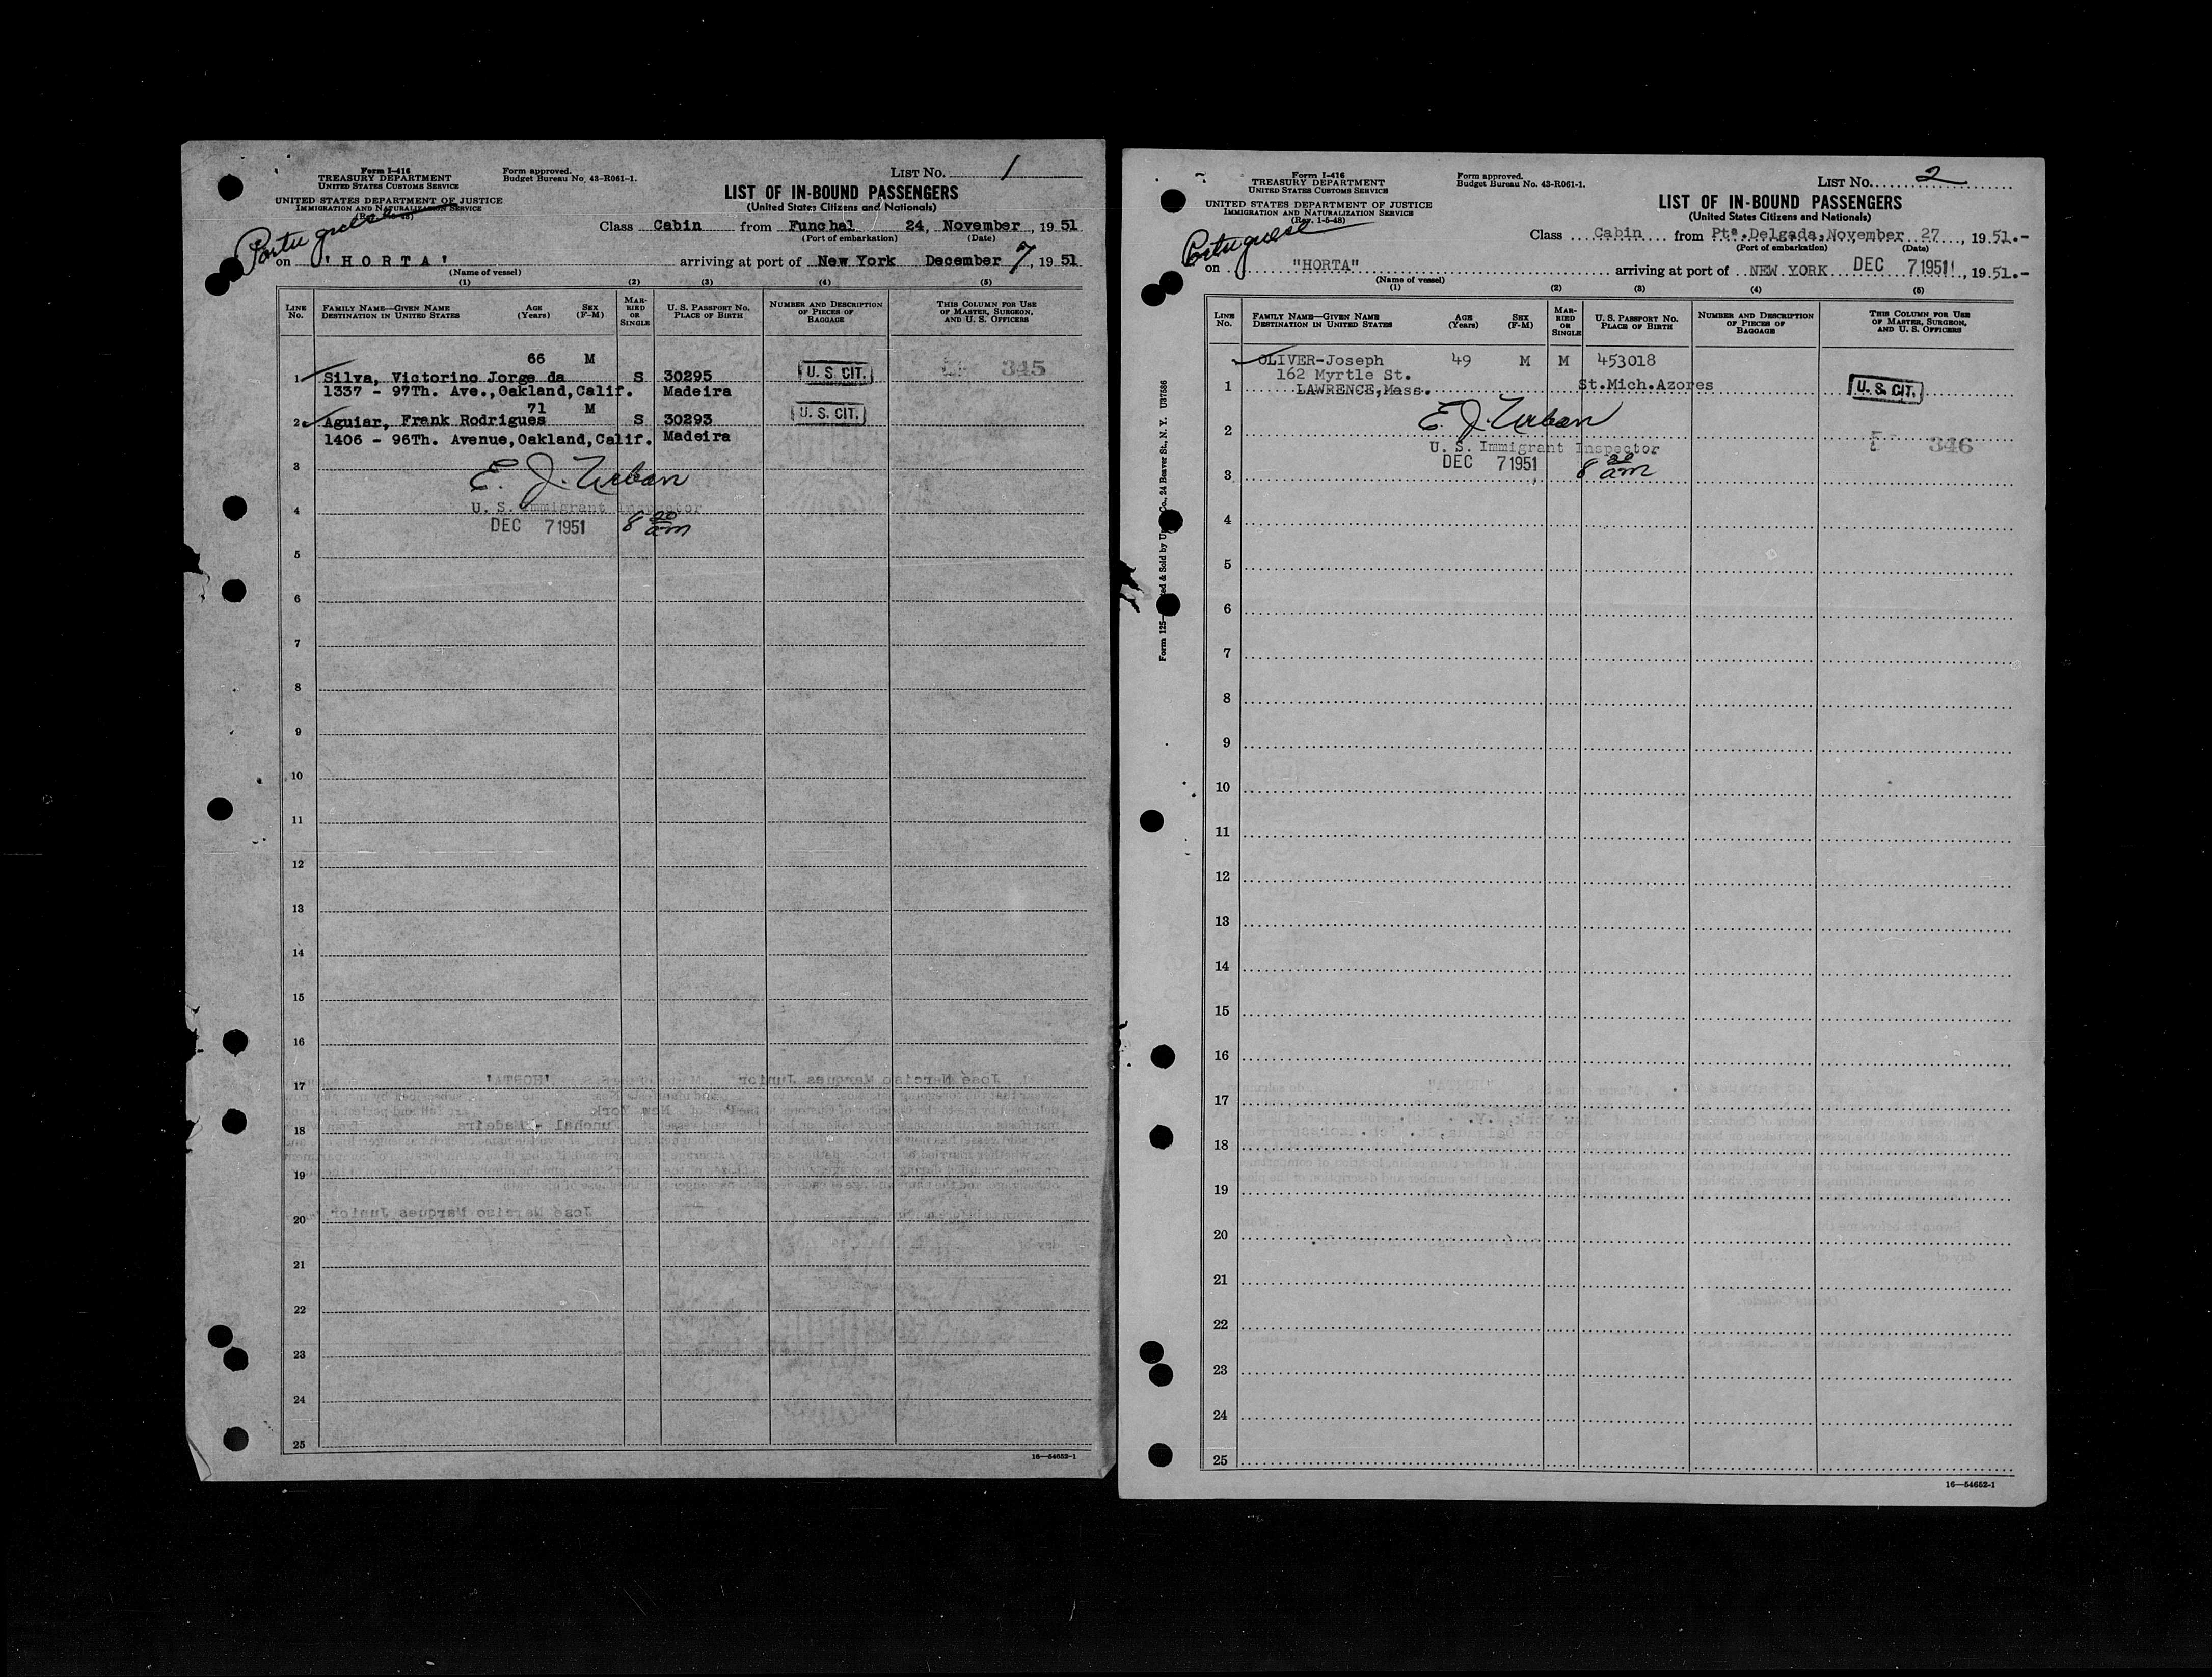 Form I-416
TREASURY DEPARTMENT
UNITED STATES CUSTOMS SERVICE
UNITED STATES DEPARTMENT OF JUSTICE
IMMIGRATION AND NATURALIZATION SERVICE
Form approved.
Budget Bureau No. 43-R061-1.
LIST NO. 1
LIST OF IN-BOUND PASSENGERS
(United States Citizens and Nationals)
Portuguese
Class Cabin from Funchal 24, November, 1951
(Port of embarkation) (Date)
on 'HORTA' arriving at port of New York December 7, 1951
(Name of vessel)
(1) (2) (3) (4) (5)
LINE NO. FAMILY NAME—GIVEN NAME DESTINATION IN UNITED STATES AGE (Years) SEX (F-M) MARRIED OR SINGLE U. S. PASSPORT NO. PLACE OF BIRTH NUMBER AND DESCRIPTION OF PIECES OF BAGGAGE THIS COLUMN FOR USE OF MASTER, SURGEON, AND U. S. OFFICERS
66 M
345
1 Silva, Victorino Jorge da S 30295 U. S. CIT.
1337 - 97Th. Ave.,Oakland,Calif. Madeira
71 M
2 Aguiar, Frank Rodrigues S 30293 U. S. CIT.
1406 - 96Th. Avenue,Oakland,Calif. Madeira
3
E. J. Urban
4
U. S. Immigrant Inspector
DEC 7 1951 8 30 am
5
6
7
8
9
10
11
12
13
14
15
16
17
18
19
20
21
22
23
24
25
16—54652-1
Form I-416
TREASURY DEPARTMENT
UNITED STATES CUSTOMS SERVICE
UNITED STATES DEPARTMENT OF JUSTICE
IMMIGRATION AND NATURALIZATION SERVICE
(Rev. 1-5-48)
Form approved.
Budget Bureau No. 43-R061-1.
LIST NO. 2
LIST OF IN-BOUND PASSENGERS
(United States Citizens and Nationals)
Portuguese
Class Cabin from Ptª.Delgada, November 27, 1951.-
(Port of embarkation) (Date)
on "HORTA" arriving at port of NEW YORK DEC 7 1951, 1951.-
(Name of vessel)
(1) (2) (3) (4) (5)
LINE NO. FAMILY NAME—GIVEN NAME DESTINATION IN UNITED STATES AGE (Years) SEX (F-M) MARRIED OR SINGLE U. S. PASSPORT NO. PLACE OF BIRTH NUMBER AND DESCRIPTION OF PIECES OF BAGGAGE THIS COLUMN FOR USE OF MASTER, SURGEON, AND U. S. OFFICERS
OLIVER-Joseph 49 M M 453018
162 Myrtle St.
1 LAWRENCE,Mass. St.Mich.Azores U. S. CIT.
E. J. Urban
2
346
U. S. Immigrant Inspector
DEC 7 1951 8 30 am
3
4
5
6
7
8
9
10
11
12
13
14
15
16
17
18
19
20
21
22
23
24
25
16—54652-1